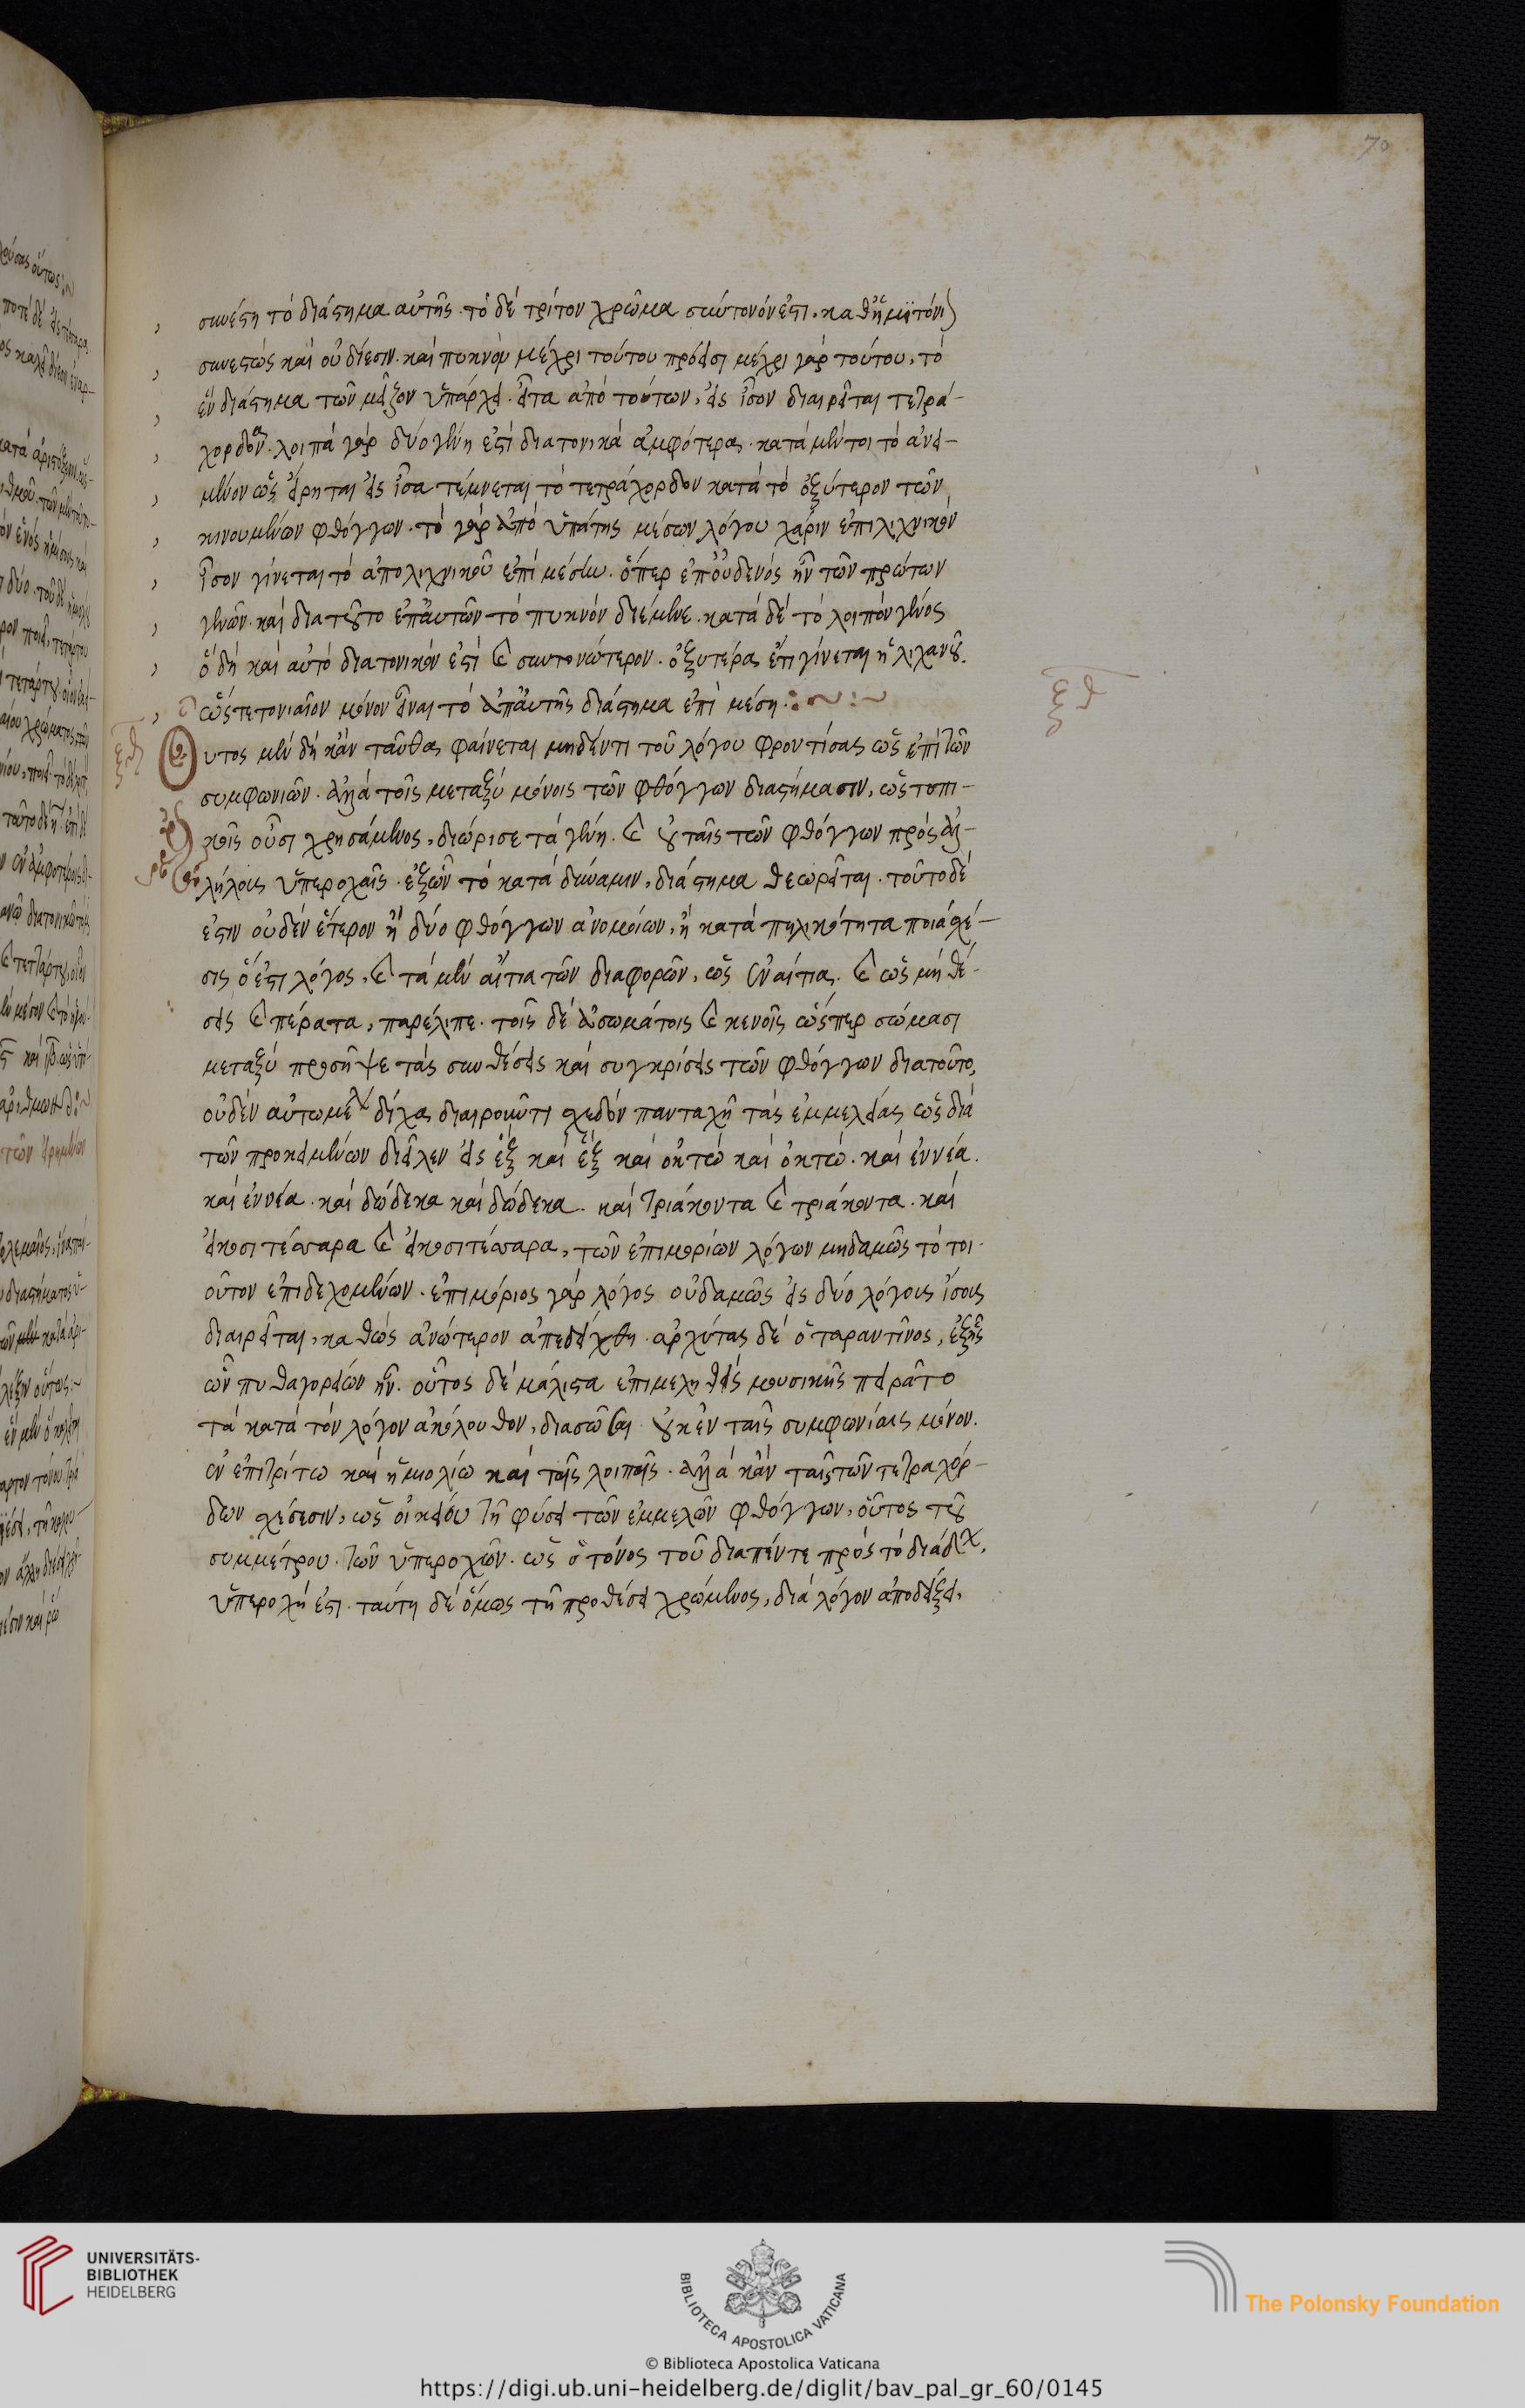 70
συνέστη τὸ διάστημα αὐτῆς· τὸ δὲ τρίτον χρῶμα σύντονόν ἐστι, καθ' ἡμιτόνι
συνεστὼς καὶ οὐ δίεσιν· καὶ πυκνὸν μέχρι τούτου πρόεισι μέχρι γὰρ τούτου, τὸ
ἓν διάστημα τῶν μεῖζον ὑπάρχει· εἶτα ἀπὸ τούτων, εἰς ἴσον διαιρεῖται τετρά-
χορδον· λοιπὰ γὰρ δύο γένη ἐστὶ διατονικὰ ἀμφότερα· κατὰ μέντοι τὸ ἀνει-
μένον ὡς εἴρηται εἰς ἴσα τέμνεται τὸ τετράχορδον κατὰ τὸ ὀξύτερον τῶν
κινουμένων φθόγγων· τὸ γὰρ ἀπὸ ὑπάτης μέσων λόγου χάριν ἐπὶ λιχνικὸν
ἴσον γίνεται τὸ ἀπὸ λιχνικοῦ ἐπὶ μέσην· ὅπερ ἐπ' οὐδενὸς ἦν τῶν πρώτων
γενῶν· καὶ διατοῦτο ἐπ' αὐτῶν τὸ πυκνὸν διέμεινε· κατὰ δὲ τὸ λοιπὸν γένος
ὃ δὴ καὶ αὐτὸ διατονικόν ἐστι καὶ συντονώτερον· ὀξυτέρας ἔτι γίνεται ἡ λιχανοῦ.
ὥστε τονιαῖον μόνον εἶναι τὸ ἀπ' αὐτῆς διάστημα ἐπὶ μέση
ξθ
Οὗτος μὲν δὴ κἂν ταῦθα φαίνεται μηδέν τι τοῦ λόγου φροντίσας ὡς ἐπὶ τῶν
συμφωνιῶν· ἀλλὰ τοῖς μεταξὺ μόνοις τῶν φθόγγων διαστήμασιν, ὡς τοπι-
κοῖς οὖσι χρησάμενος, διώρισε τὰ γένη· καὶ οὐ ταῖς τῶν φθόγγων πρὸς ἀλ-
λήλους ὑπεροχαῖς· ἐξ ὧν τὸ κατὰ δύναμιν, διάστημα θεωρεῖται· τοῦτο δέ
ἐστιν οὐδὲν ἕτερον ἢ δύο φθόγγων ἀνομοίων, ἡ κατὰ πηλικότητα ποιὰ σχέ-
σις ὅ ἐστι λόγος, καὶ τὰ μὲν αἴτια τῶν διαφορῶν, ὡς ἀναίτια· καὶ ὡς μὴ θέ-
σεις καὶ πέρατα, παρέλιπε· τοῖς δὲ ἀσωμάτοις καὶ κενοῖς ὥσπερ σώμασι
μεταξὺ προσῆψε τὰς συνθέσεις καὶ συγκρίσεις τῶν φθόγγων διατοῦτο,
οὐδὲν αὐτῷ μέλει δίχα διαιροῦντι σχεδὸν πανταχῆ τὰς ἐμμελείας ὡς διὰ
τῶν προκειμένων διεῖλεν εἰς ἓξ καὶ ἓξ καὶ ὀκτὼ καὶ ὀκτώ· καὶ ἐννέα.
καὶ ἐννέα· καὶ δώδεκα καὶ δώδεκα· καὶ τριάκοντα καὶ τριάκοντα· καὶ
εἰκοσιτέσσαρα καὶ εἰκοσιτέσσαρα, τῶν ἐπιμορίων λόγων μηδαμῶς τὸ τοι-
οῦτον ἐπιδεχομένων· ἐπιμόριος γὰρ λόγος οὐδαμῶς εἰς δύο λόγους ἴσους
διαιρεῖται, καθὼς ἀνώτερον ἀπεδείχθη· ἀρχύτας δὲ ὁ ταραντῖνος, ἑξῆς
ὧν πυθαγορείων ἦν· οὗτος δὲ μάλιστα ἐπιμεληθεὶς μουσικῆς πειρᾶτο
τὰ κατὰ τὸν λόγον ἀκόλουθον, διασῶσαι· οὐκ ἐν ταῖς συμφωνίαις μόνον.
ἐν ἐπιτρίτω καὶ ἡμιολίω καὶ ταῖς λοιπαῖς· ἀλλὰ κἂν ταῖς τῶν τετραχόρ-
δων σχέσεσιν, ὡς οἰκείου τῆ φύσει τῶν ἐμμελῶν φθόγγων, οὗτος τοῦ
συμμέτρου· τῶν ὑπεροχῶν· ὡς ὁ τόνος τοῦ διαπέντε πρὸς τὸ διὰ δ,
ὑπεροχή ἐστι· ταύτη δὲ ὅμως τῆ προθέσει χρώμενος, διὰ λόγον ἀποδείξει,
UNIVERSITÄTS-
BIBLIOTHEK
HEIDELBERG
BIBLIOTECA APOSTOLICA VATICANA
The Polonsky Foundation
© Biblioteca Apostolica Vaticana
https://digi.ub.uni-heidelberg.de/diglit/bav_pal_gr_60/0145